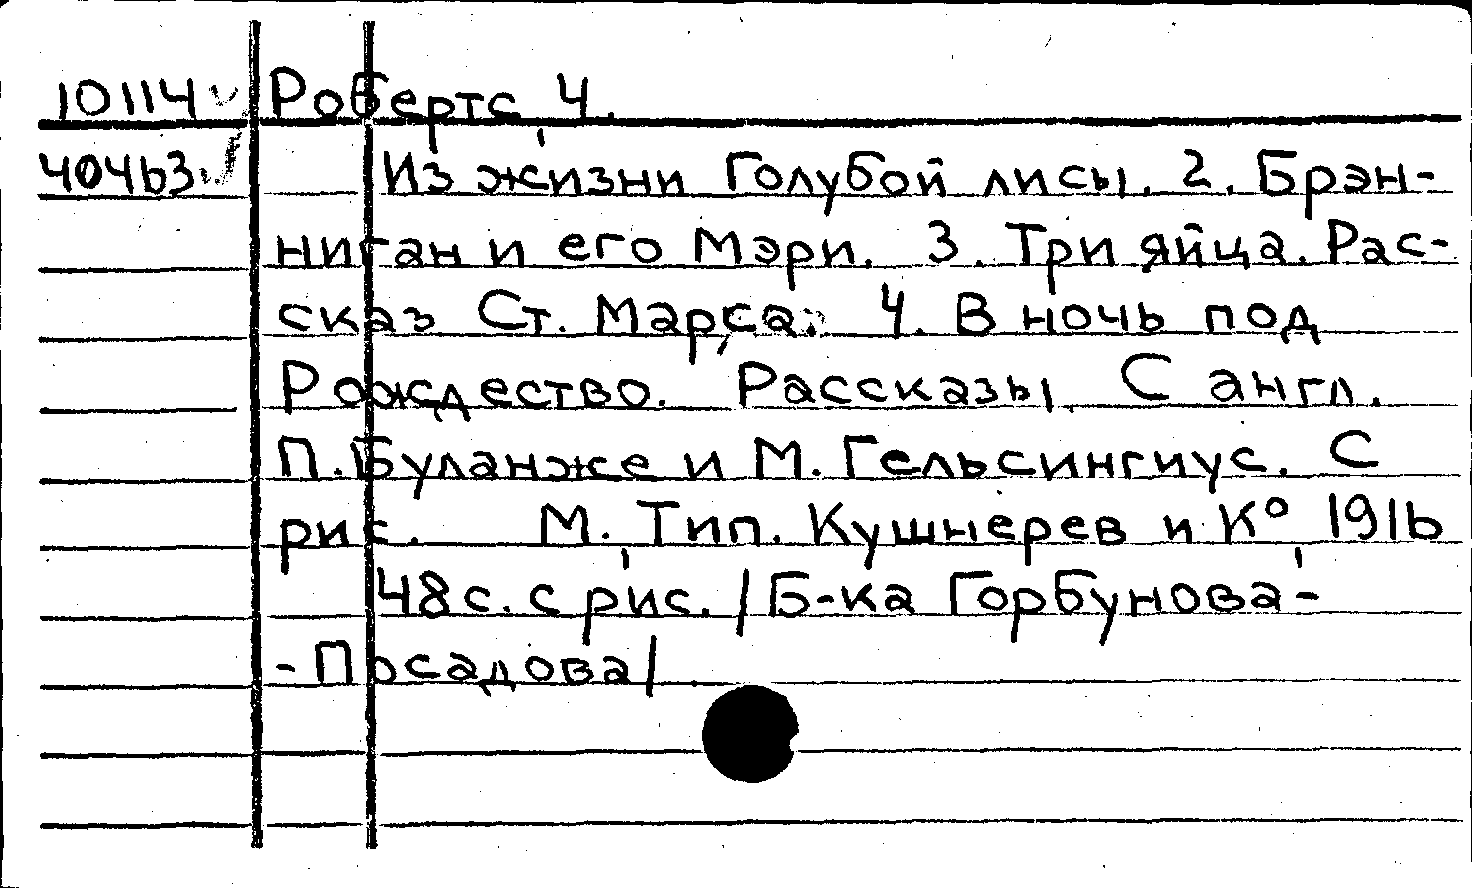 10114 Робертс, Ч.
40463 Из жизни Голубой лисы. 2. Брэн-
ниган и его Мэри. 3. Три яйца. Рас-
сказ Ст. Марса. 4. В ночь под
Рождество. Рассказы. С англ.
П. Буланже и М. Гельсингиус. С
рис. М. Тип. Кушнерев и К° 1916
48 с. с рис. /Б-ка Горбунова-
-Посадова/